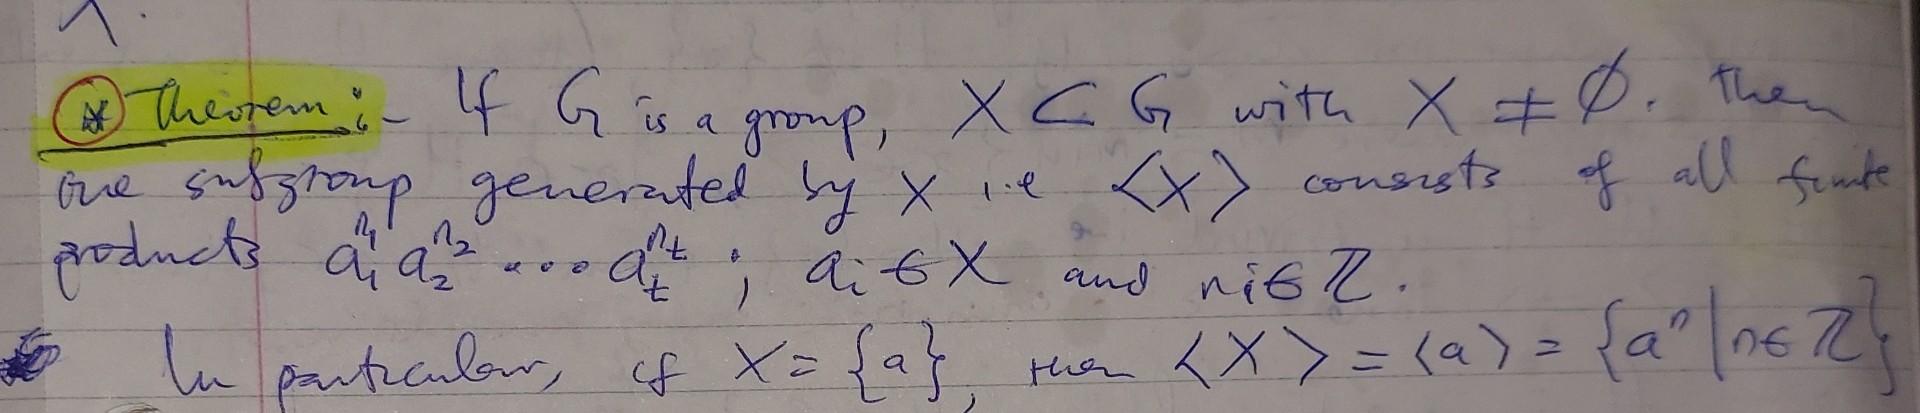 * Theorem :- If G is a group, X ⊂ G with X ≠ ∅. Then
the subgroup generated by X i.e <X> consists of all finite
products a₁^n₁ a₂^n₂ ... aₜ^nₜ ; aᵢ ∈ X and nᵢ ∈ ℤ.
In particular, if X = {a}, then <X> = <a> = {aⁿ | n ∈ ℤ}